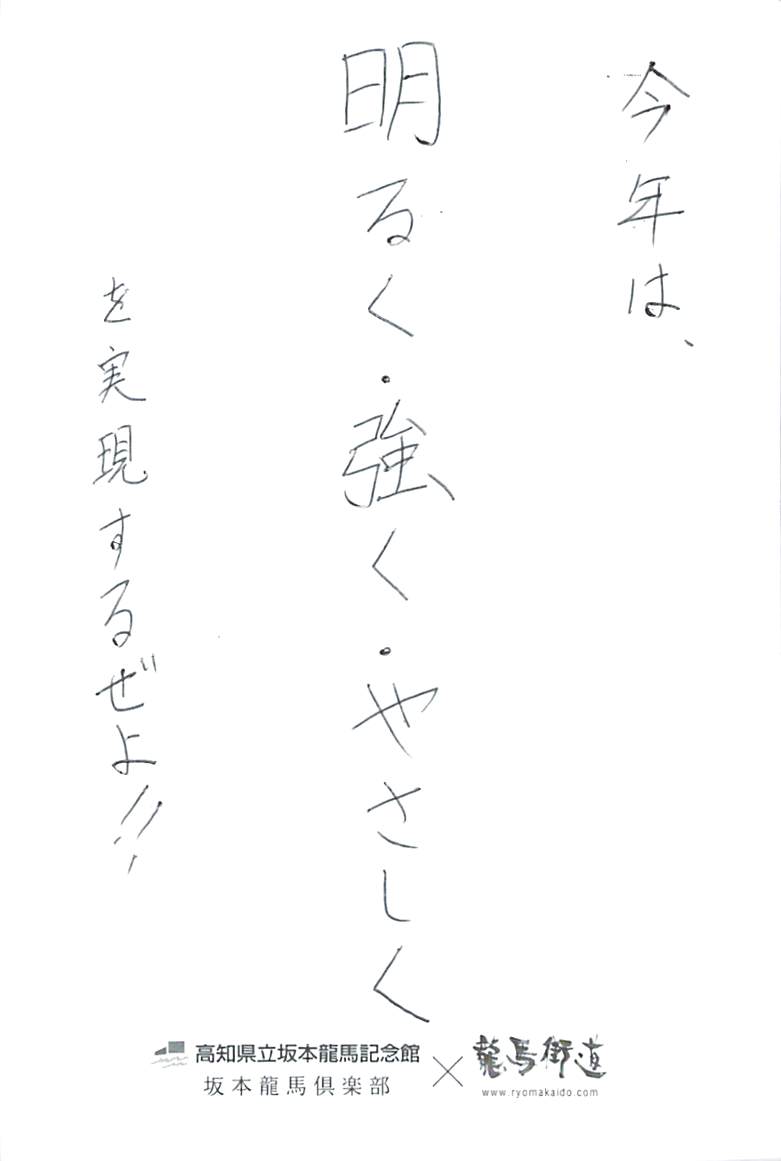 今年は、
明るく・強く・やさしく
を実現するぜよ!!
高知県立坂本龍馬記念館
坂本龍馬倶楽部
×
龍馬街道
www.ryomakaido.com